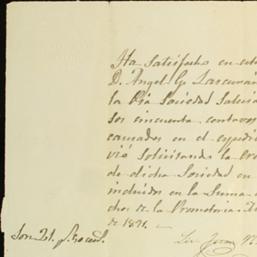 Ha satisfecho en est
D. Angel G. Lascurai
la Pia Sociedad
sos cincuenta centavos
causados en el expedie
vió solicitando la
de dicha Sociedad en
incluidos en la suma
chos de la Promotoria
de 1871.
Son 21. p.